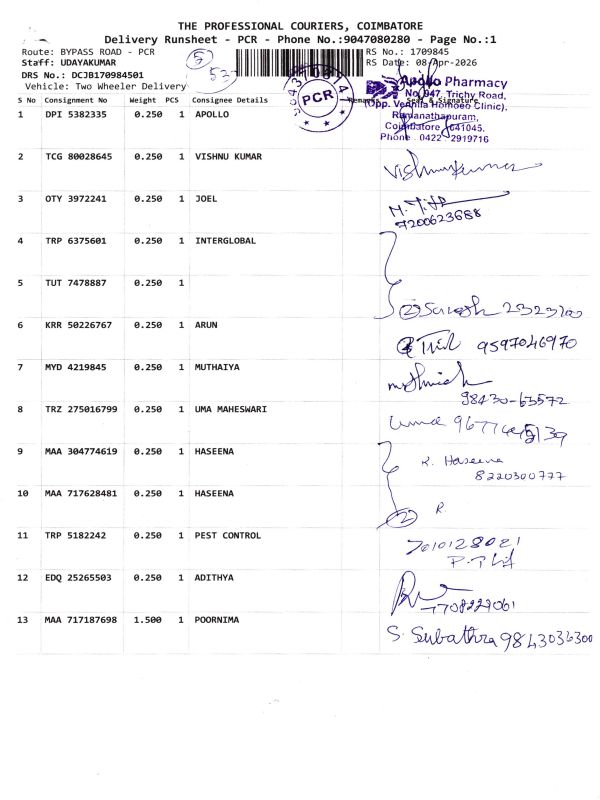 THE PROFESSIONAL COURIERS, COIMBATORE
Delivery Runsheet - PCR - Phone No.:9047080280 - Page No.:1
Route: BYPASS ROAD - PCR
Staff: UDAYAKUMAR
DRS No.: DCJB170984501
Vehicle: Two Wheeler Delivery
5
RS No.: 1709845
RS Date: 08-Apr-2026
PCR
Apollo Pharmacy
No. 947, Trichy Road,
(Opp. Vennila Homoeo Clinic),
Ramanathapuram,
Coimbatore - 641045.
Phone : 0422 - 2919716
S No Consignment No Weight PCS Consignee Details Remarks Seal & Signature
1 DPI 5382335 0.250 1 APOLLO
2 TCG 80028645 0.250 1 VISHNU KUMAR Vishnukumar
3 OTY 3972241 0.250 1 JOEL
7200623688
4 TRP 6375601 0.250 1 INTERGLOBAL
5 TUT 7478887 0.250 1
2 Suresh
6 KRR 50226767 0.250 1 ARUN 9597046970
7 MYD 4219845 0.250 1 MUTHAIYA
98430-63572
8 TRZ 275016799 0.250 1 UMA MAHESWARI Uma
9 MAA 304774619 0.250 1 HASEENA K. Haseena
8220300777
10 MAA 717628481 0.250 1 HASEENA R.
2
11 TRP 5182242 0.250 1 PEST CONTROL 7010128021
12 EDQ 25265503 0.250 1 ADITHYA
7708229061
13 MAA 717187698 1.500 1 POORNIMA S. Subathra 9843036300